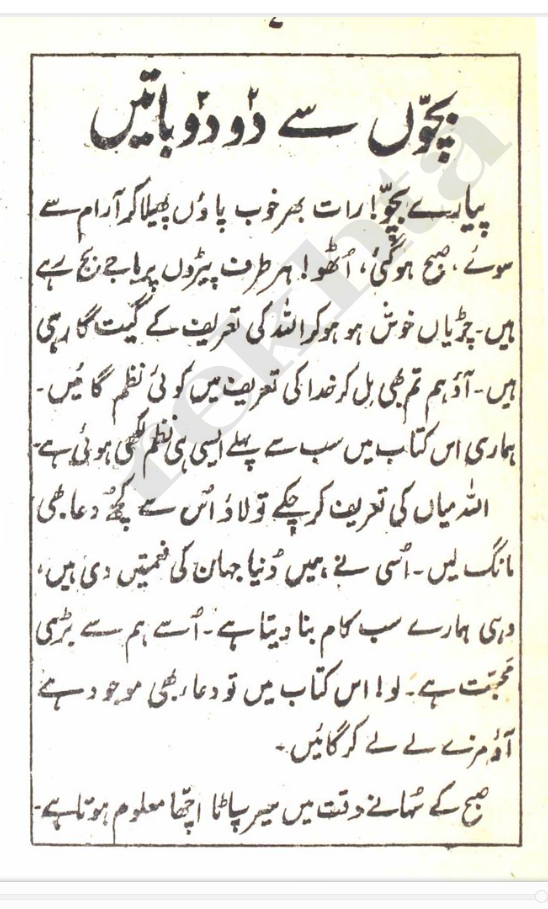 بچّوں سے دو دو باتیں
پیارے بچّو! رات بھر خوب پاؤں پھیلا کر آرام سے
سوئے، صبح ہو گئی، اُٹھو! ہر طرف پیڑوں پر باجے بج رہے
ہیں۔ چڑیاں خوش ہو ہو کر اللہ کی تعریف کے گیت گا رہی
ہیں۔ آؤ ہم تم بھی مل کر خدا کی تعریف میں کوئی نظم گائیں۔
ہماری اس کتاب میں سب سے پہلے ایسی ہی نظم لکھی ہوئی ہے۔
اللہ میاں کی تعریف کر چکے تو لاؤ اُس سے کچھ دعا بھی
مانگ لیں۔ اُسی نے ہمیں دُنیا جہان کی نعمتیں دی ہیں،
وہی ہمارے سب کام بنا دیتا ہے۔ اُسے ہم سے بڑی
محبّت ہے۔ لو! اس کتاب میں تو دعا بھی موجود ہے
آؤ مزے لے لے کر گائیں۔
صبح کے سُہانے وقت میں سیر سپاٹا اچّھا معلوم ہوتا ہے۔
rekhta